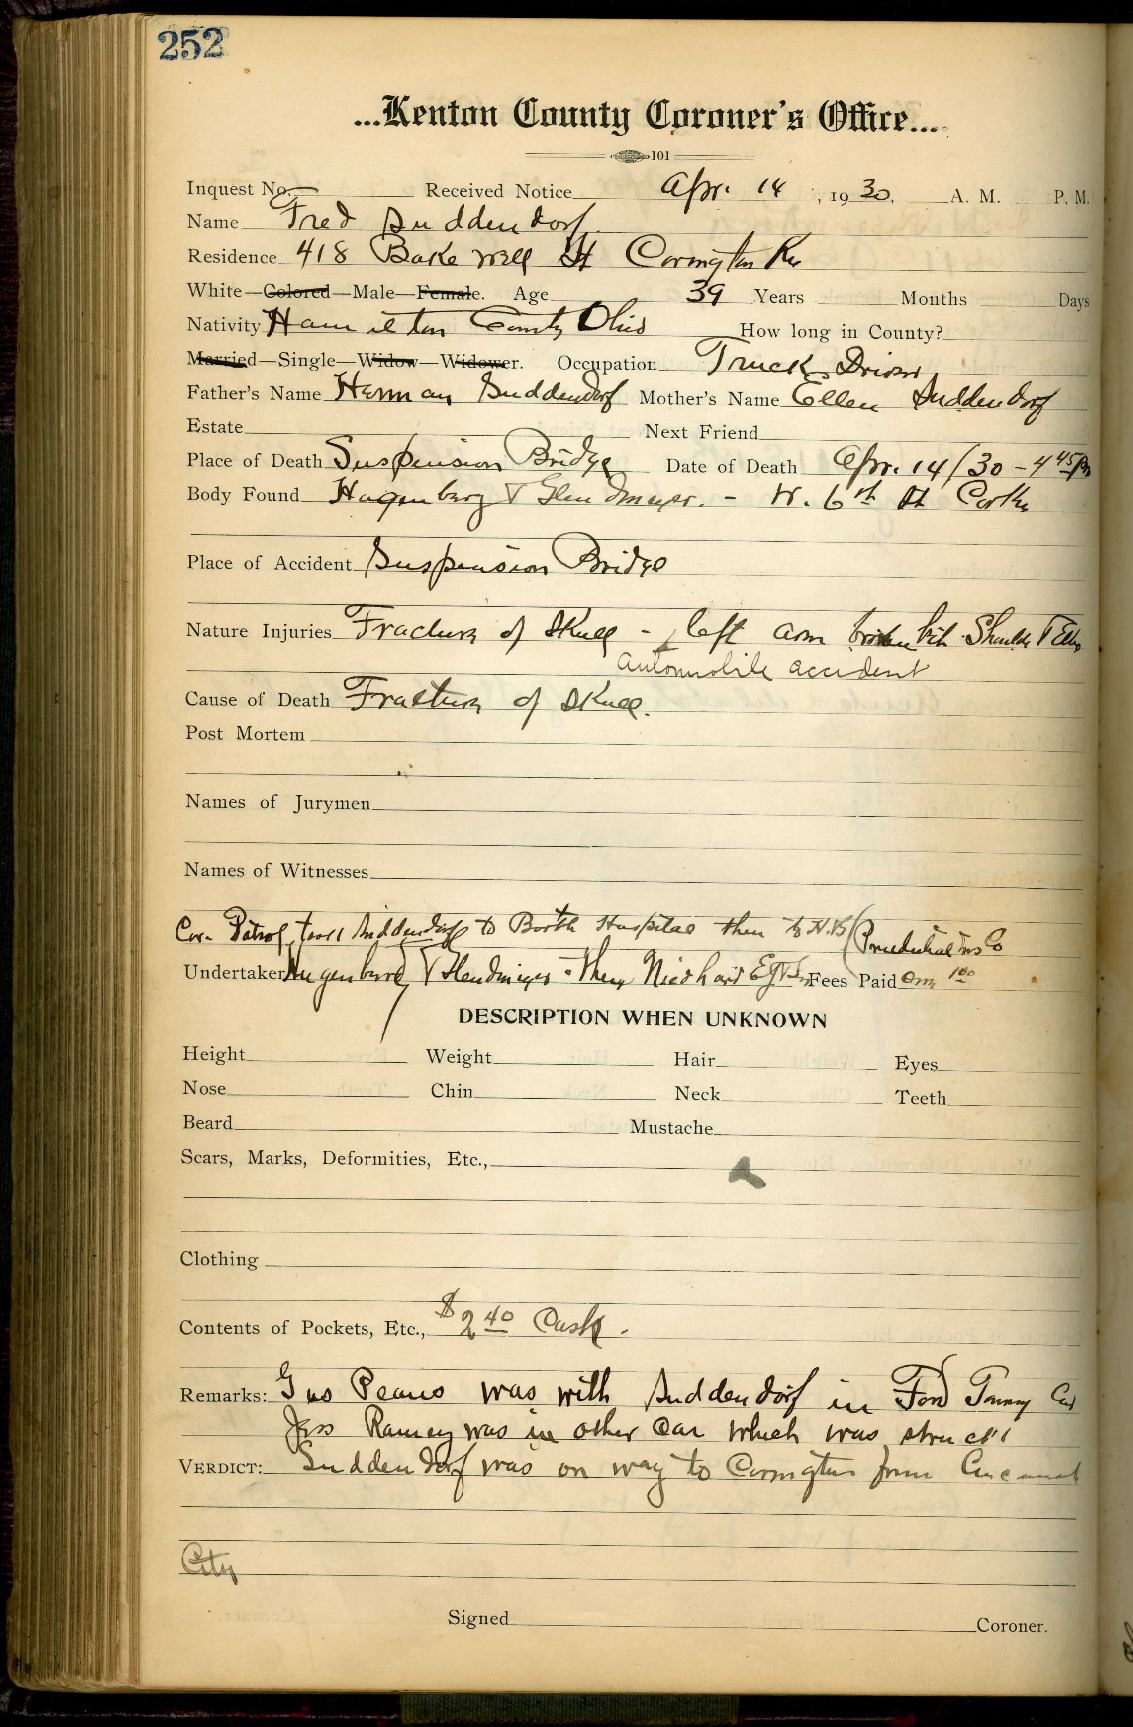 252
...Kenton County Coroner's Office...
101
Inquest No. Received Notice Apr. 14, 1930. A. M. P. M.
Name Fred Suddendorf
Residence 418 Bakewell St Covington Ky
White—Colored—Male—Female. Age 39 Years Months Days
Nativity Hamilton County Ohio How long in County?
Married—Single—Widow—Widower. Occupation Truck Driver
Father's Name Herman Suddendorf Mother's Name Ellen Suddendorf
Estate Next Friend
Place of Death Suspension Bridge Date of Death Apr. 14/30 - 4 45 Pm
Body Found - W. 6th St
Place of Accident Suspension Bridge
Nature Injuries Fracture of Skull - left arm broken bet. Shoulder & Elbow
Automobile accident
Cause of Death Fracture of Skull.
Post Mortem
Names of Jurymen
Names of Witnesses
Cov. Patrol took Suddendorf to Booth Hospital then to H.&G (Prudential Ins Co
Undertaker Fees Paid
DESCRIPTION WHEN UNKNOWN
Height Weight Hair Eyes
Nose Chin Neck Teeth
Beard Mustache
Scars, Marks, Deformities, Etc.,
Clothing
Contents of Pockets, Etc., $2 40 Cash.
Remarks: Gus was with Suddendorf in Ford Car
Jess Ramey was in other car which was struck
VERDICT: Suddendorf was on way to Covington from Cincinnati
City
Signed Coroner.